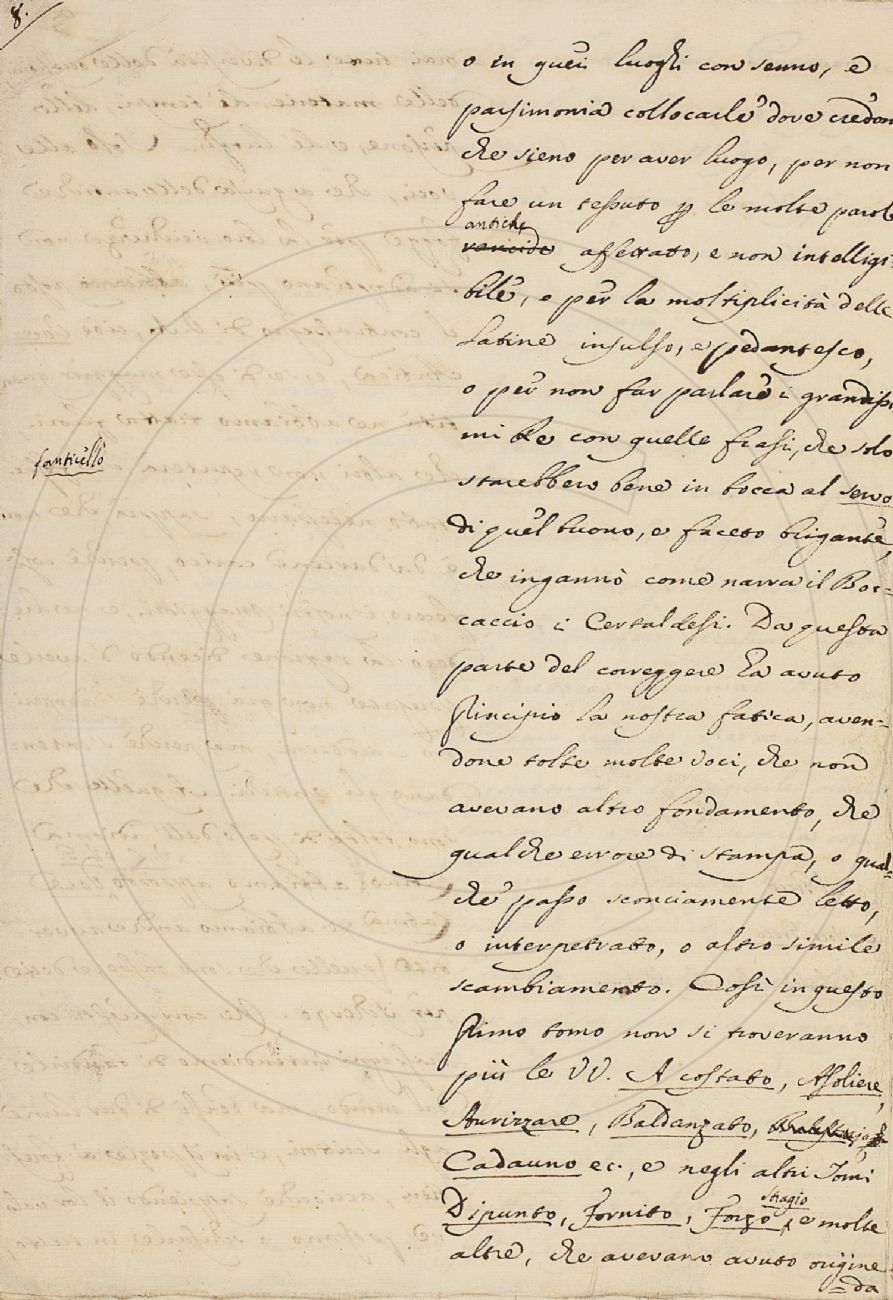 8.
o in quei luoghi con senno, e
parsimonia collocarle dove credon
che sieno per aver luogo, per non
fare un tessuto p le molte parole
antiche
rancide affettato, e non intelligi=
bile, o per la moltiplicità delle
Latine insulso, e pedantesco,
o per non far parlare i grandissi
mi Re con quelle frasi, che solo
fanticello
starebbero bene in bocca al servo
di quel buono, e faceto brigante,
che ingannò come narra il Boc=
caccio i Certaldesi. Da questa
parte del correggere ha avuto
principio la nostra fatica, aven=
done tolte molte voci, che non
avevano altro fondamento, che
qualche errore di stampa, o qual=
che passo sconciamente letto,
o interpetrato, o altro simile
scambiamento. Così in questo
primo tomo non si troveranno
più le VV. A costato, Assoliere,
Aurizzare, Baldanzato,
Cadauno ec., e negli altri Tomi
stragio
Dipunto, Fornito, Forzo, e molte
altre, che avevano avuto origine
=da